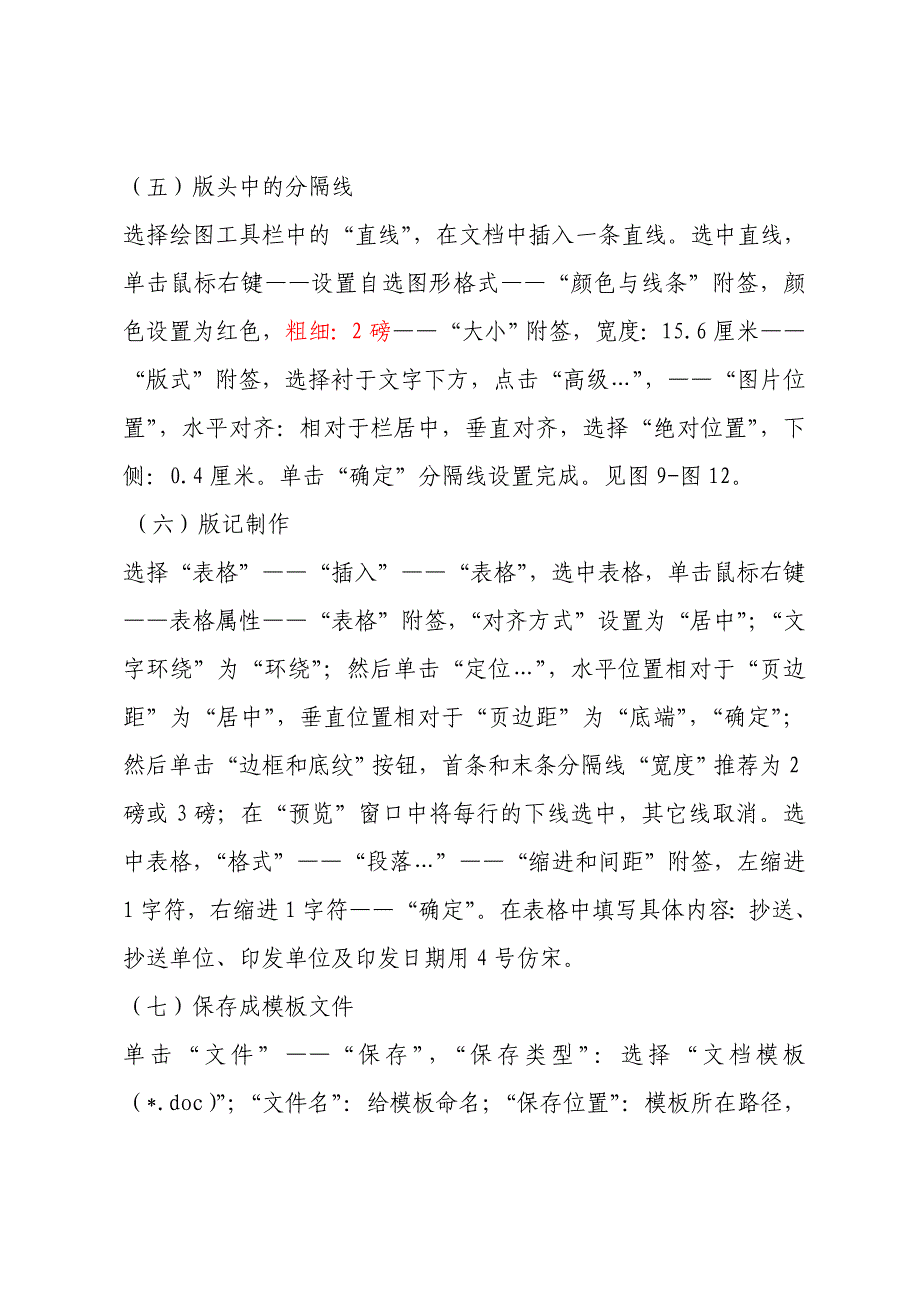 （五）版头中的分隔线
选择绘图工具栏中的“直线”，在文档中插入一条直线。选中直线，
单击鼠标右键——设置自选图形格式——“颜色与线条”附签，颜
色设置为红色，粗细：2 磅——“大小”附签，宽度：15.6 厘米——
“版式”附签，选择衬于文字下方，点击“高级…”，——“图片位
置”，水平对齐：相对于栏居中，垂直对齐，选择“绝对位置”，下
侧：0.4 厘米。单击“确定”分隔线设置完成。见图 9-图 12。
（六）版记制作
选择“表格”——“插入”——“表格”，选中表格，单击鼠标右键
——表格属性——“表格”附签，“对齐方式”设置为“居中”；“文
字环绕”为“环绕”；然后单击“定位…”，水平位置相对于“页边
距”为“居中”，垂直位置相对于“页边距”为“底端”，“确定”；
然后单击“边框和底纹”按钮，首条和末条分隔线“宽度”推荐为 2
磅或 3 磅；在“预览”窗口中将每行的下线选中，其它线取消。选
中表格，“格式”——“段落…”——“缩进和间距”附签，左缩进
1 字符，右缩进 1 字符——“确定”。在表格中填写具体内容：抄送、
抄送单位、印发单位及印发日期用 4 号仿宋。
（七）保存成模板文件
单击“文件”——“保存”，“保存类型”：选择“文档模板
（*.doc)”；“文件名”：给模板命名；“保存位置”：模板所在路径，